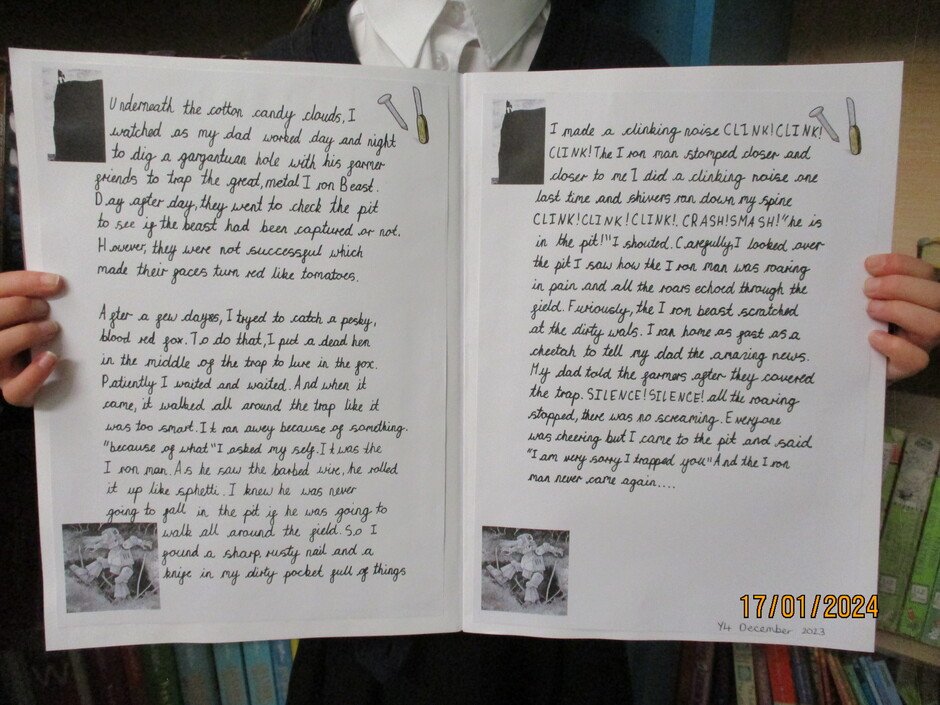 Underneath the cotton candy clouds, I
watched as my dad worked day and night
to dig a gargantuan hole with his farmer
friends to trap the great, metal Iron Beast.
Day after day, they went to check the pit
to see if the beast had been captured or not.
However, they were not successful which
made their faces turn red like tomatoes.
After a few dayes, I tryed to catch a pesky,
blood red fox. To do that, I put a dead hen
in the middle of the trap to lure in the fox.
Patiently I waited and waited. And when it
came, it walked all around the trap like it
was too smart. It ran awey because of something.
"because of what" I asked my self. It was the
Iron man. As he saw the barbed wire, he rolled
it up like sphetti. I knew he was never
going to fall in the pit if he was going to
walk all around the field. So I
found a sharp, rusty nail and a
knife in my dirty pocket full of things
I made a clinking noise CLINK! CLINK!
CLINK! The Iron man stomped closer and
closer to me I did a clinking noise one
last time and shivers ran down my spine
CLINK! CLINK! CLINK!. CRASH! SMASH! "he is
in the pit!" I shouted. Carefully, I looked over
the pit I saw how the Iron man was roaring
in pain and all the roars echoed through the
field. Furiously, the Iron beast scratched
at the dirty wals. I ran home as fast as a
cheetah to tell my dad the amazing news.
My dad told the farmers after they covered
the trap. SILENCE! SILENCE! all the roaring
stopped, there was no screaming. Everyone
was cheering but I came to the pit and said
"I am very sorry I trapped you" And the Iron
man never came again....
Y4 December 2023
17/01/2024